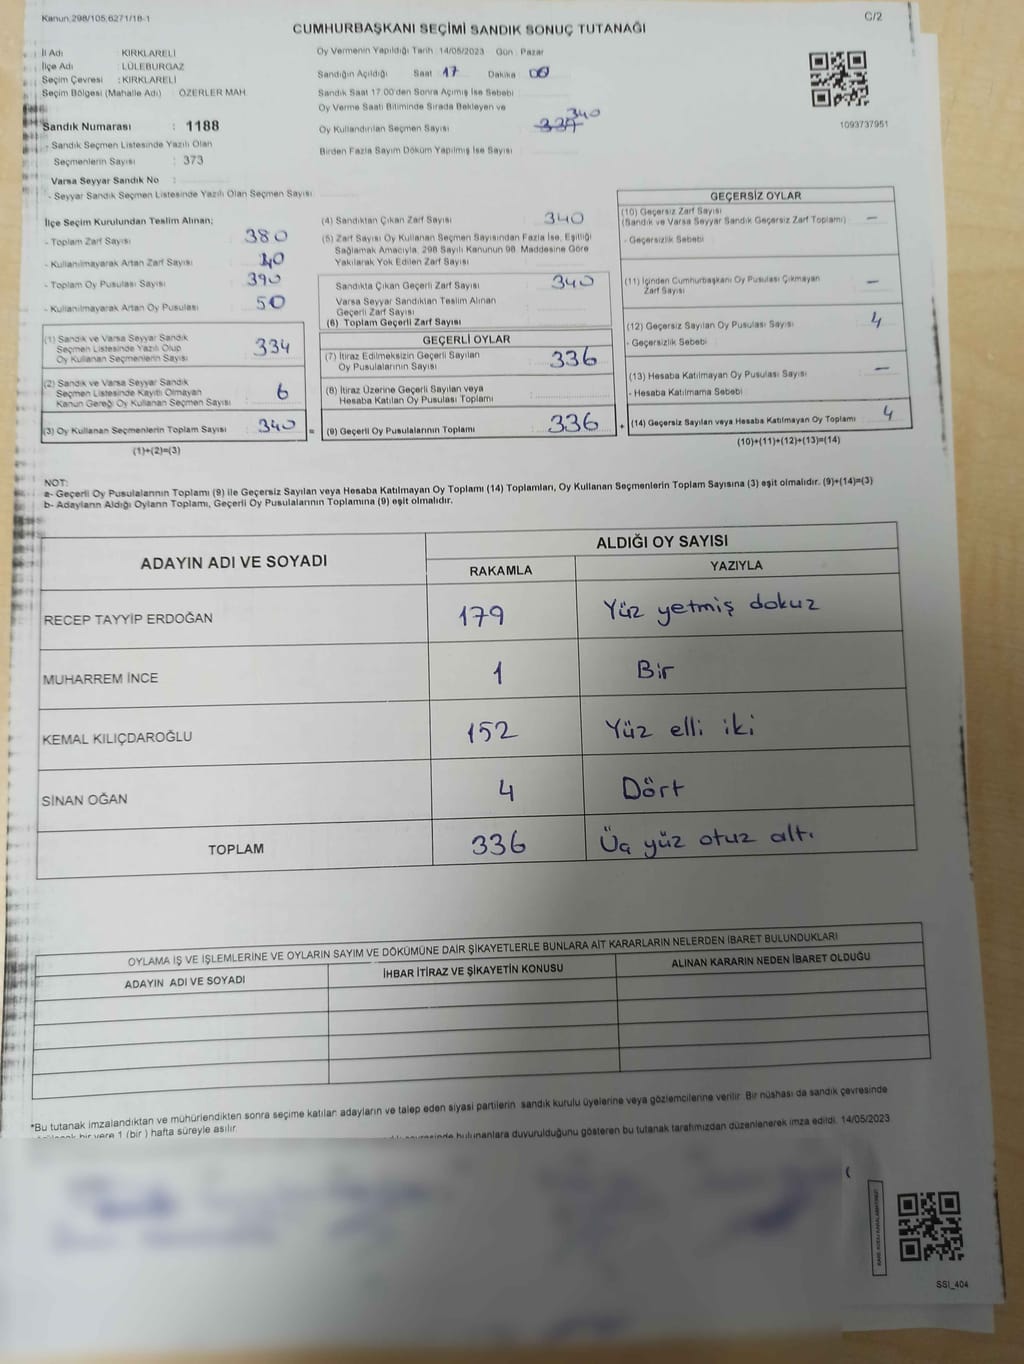 Kanun 298/105,6271/18-1
C/2
CUMHURBAŞKANI SEÇİMİ SANDIK SONUÇ TUTANAĞI
İl Adı : KIRKLARELİ
İlçe Adı : LÜLEBURGAZ
Seçim Çevresi : KIRKLARELİ
Seçim Bölgesi (Mahalle Adı) : ÖZERLER MAH.
Sandık Numarası : 1188
- Sandık Seçmen Listesinde Yazılı Olan
Seçmenlerin Sayısı : 373
Varsa Seyyar Sandık No :
- Seyyar Sandık Seçmen Listesinde Yazılı Olan Seçmen Sayısı
Oy Vermenin Yapıldığı Tarih 14/05/2023 Gün : Pazar
Sandığın Açıldığı Saat 17 Dakika 00
Sandık Saat 17:00'den Sonra Açımış İse Sebebi
Oy Verme Saati Bitiminde Sırada Bekleyen ve
Oy Kullandırılan Seçmen Sayısı 340
Birden Fazla Sayım Döküm Yapılmış İse Sayısı
1093737951
İlçe Seçim Kurulundan Teslim Alınan;
- Toplam Zarf Sayısı 380
- Kullanılmayarak Artan Zarf Sayısı 40
- Toplam Oy Pusulası Sayısı 390
- Kullanılmayarak Artan Oy Pusulası 50
(1) Sandık ve Varsa Seyyar Sandık
Seçmen Listesinde Yazılı Olup
Oy Kullanan Seçmenlerin Sayısı 334
(2) Sandık ve Varsa Seyyar Sandık
Seçmen Listesinde Kayıtlı Olmayan
Kanun Gereği Oy Kullanan Seçmen Sayısı 6
(3) Oy Kullanan Seçmenlerin Toplam Sayısı 340
(1)+(2)=(3)
(4) Sandıktan Çıkan Zarf Sayısı 340
(5) Zarf Sayısı Oy Kullanan Seçmen Sayısından Fazla İse, Eşitliği
Sağlamak Amacıyla, 298 Sayılı Kanunun 98. Maddesine Göre
Yakılarak Yok Edilen Zarf Sayısı
Sandıkta Çıkan Geçerli Zarf Sayısı 340
Varsa Seyyar Sandıktan Teslim Alınan
Geçerli Zarf Sayısı
(6) Toplam Geçerli Zarf Sayısı
GEÇERLİ OYLAR
(7) İtiraz Edilmeksizin Geçerli Sayılan
Oy Pusulalarının Sayısı 336
(8) İtiraz Üzerine Geçerli Sayılan veya
Hesaba Katılan Oy Pusulası Toplamı
= (9) Geçerli Oy Pusulalarının Toplamı 336
GEÇERSİZ OYLAR
(10) Geçersiz Zarf Sayısı
(Sandık ve Varsa Seyyar Sandık Geçersiz Zarf Toplamı) -
- Geçersizlik Sebebi
(11) İçinden Cumhurbaşkanı Oy Pusulası Çıkmayan
Zarf Sayısı -
(12) Geçersiz Sayılan Oy Pusulası Sayısı 4
- Geçersizlik Sebebi
(13) Hesaba Katılmayan Oy Pusulası Sayısı -
- Hesaba Katılmama Sebebi
+ (14) Geçersiz Sayılan veya Hesaba Katılmayan Oy Toplamı 4
(10)+(11)+(12)+(13)=(14)
NOT:
a- Geçerli Oy Pusulalarının Toplamı (9) ile Geçersiz Sayılan veya Hesaba Katılmayan Oy Toplamı (14) Toplamları, Oy Kullanan Seçmenlerin Toplam Sayısına (3) eşit olmalıdır. (9)+(14)=(3)
b- Adayların Aldığı Oyların Toplamı, Geçerli Oy Pusulalarının Toplamına (9) eşit olmalıdır.
ADAYIN ADI VE SOYADI ALDIĞI OY SAYISI
RAKAMLA YAZIYLA
RECEP TAYYİP ERDOĞAN 179 Yüz yetmiş dokuz
MUHARREM İNCE 1 Bir
KEMAL KILIÇDAROĞLU 152 Yüz elli iki
SİNAN OĞAN 4 Dört
TOPLAM 336 Üç yüz otuz altı
OYLAMA İŞ VE İŞLEMLERİNE VE OYLARIN SAYIM VE DÖKÜMÜNE DAİR ŞİKAYETLERLE BUNLARA AİT KARARLARIN NELERDEN İBARET BULUNDUKLARI
ADAYIN ADI VE SOYADI İHBAR İTİRAZ VE ŞİKAYETİN KONUSU ALINAN KARARIN NEDEN İBARET OLDUĞU
*Bu tutanak imzalandıktan ve mühürlendikten sonra seçime katılan adayların ve talep eden siyasi partilerin sandık kurulu üyelerine veya gözlemcilerine verilir. Bir nüshası da sandık çevresinde
bir yere 1 (bir) hafta süreyle asılır.
bulunanlara duyurulduğunu gösteren bu tutanak tarafımızdan düzenlenerek imza edildi. 14/05/2023
SSI_404